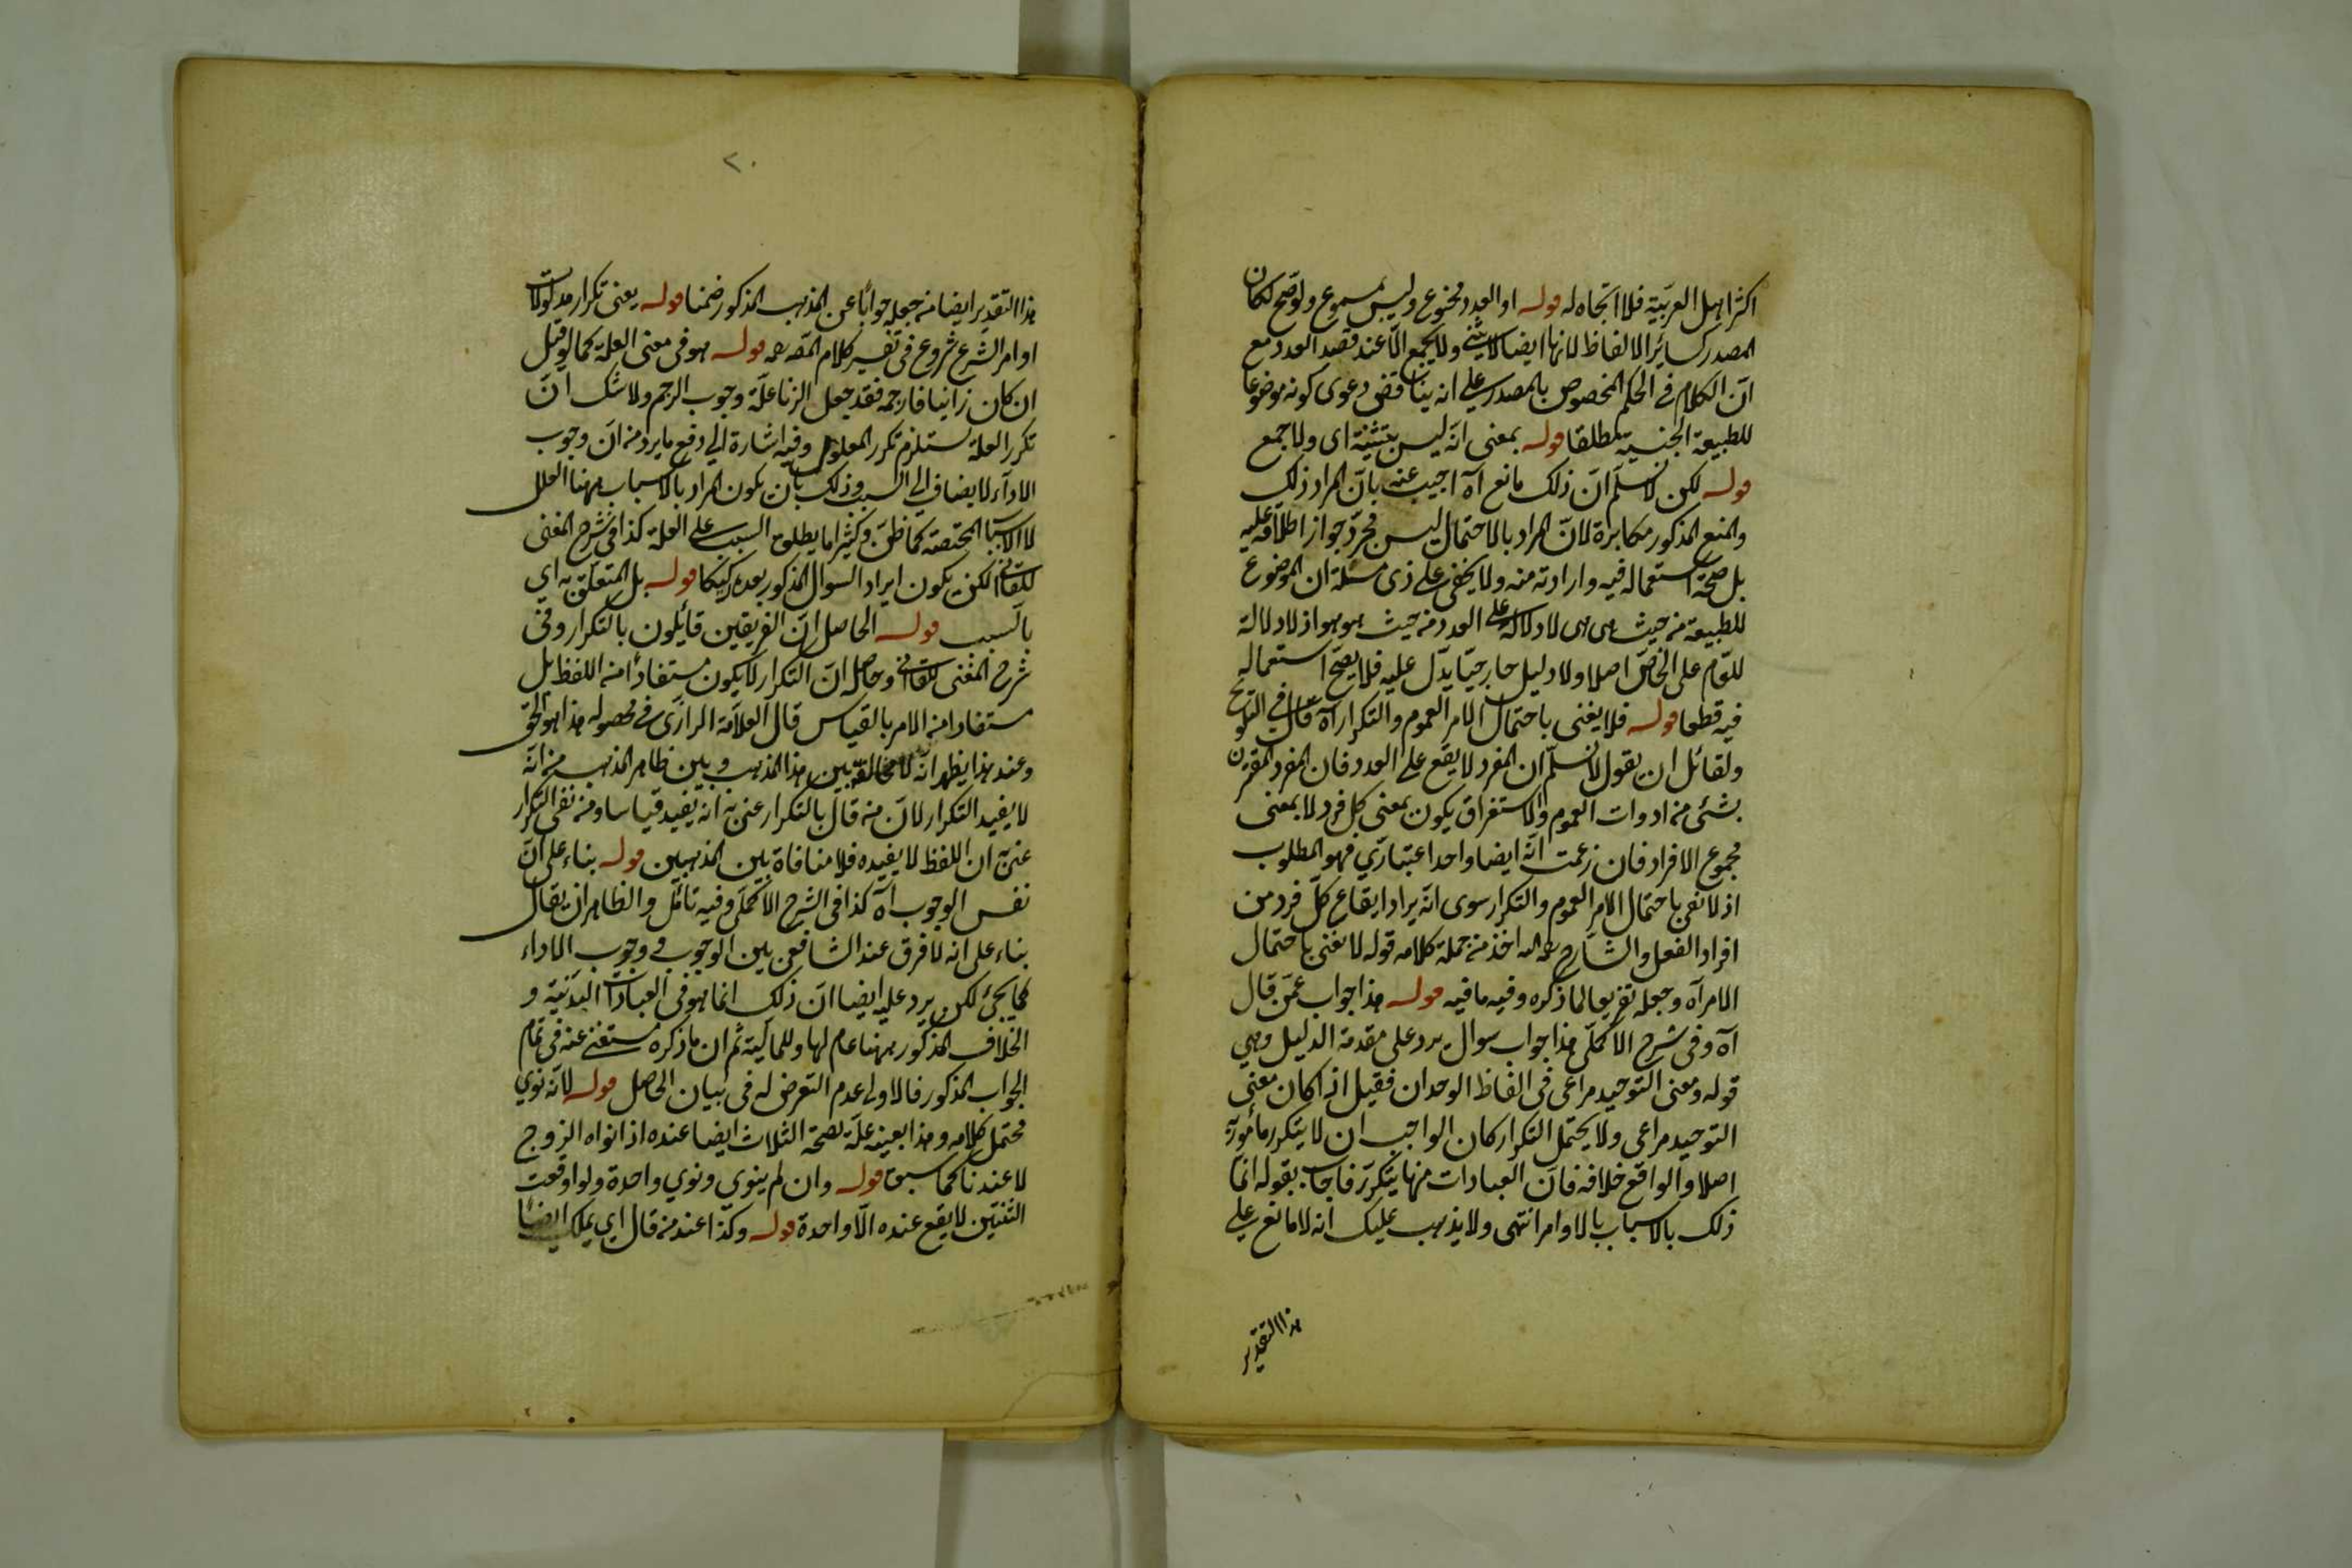 اكثر اهل العربية فلا اتجاه له قوله او العدد فممنوع وليس بمسموع ولو صح لكان
المصدر كسائر الالفاظ لانها ايضا لا يثنى ولا يجمع الا عند قصد العدد مع
ان الكلام في الحكم المخصوص بالمصدر على انه يناقض دعوى كونه موضوعا
للطبيعة الجنسية مطلقا قوله بمعنى انه ليس بتثنية اى ولا جمع
قوله لكن لا نسلم ان ذلك مانع آه اجيب عنه بان المراد ذلك
والمنع المذكور مكابرة لان المراد بالاحتمال ليس مجرد جواز اطلاقه عليه
بل صحة استعماله فيه وارادته منه ولا يخفى على ذى مسكة ان الموضوع
للطبيعة من حيث هى هى لا دلالة له على العدد من حيث هو هو اذ لا دلالة
للعام على الخاص اصلا ولا دليل خارجيا يدل عليه فلا يصح استعماله
فيه قطعا قوله فلا يغنى باحتمال الامر العموم والتكرار آه قال في التلويح
ولقائل ان يقول لا نسلم ان المفرد لا يقع على العدد فان المفرد المقترن
بشئ من ادوات العموم والاستغراق يكون بمعنى كل فرد لا بمعنى
مجموع الافراد فان زعمت انه ايضا واحد اعتبارى فهو المطلوب
اذ لا نعنى باحتمال الامر العموم والتكرار سوى انه يراد ايقاع كل فرد من
افراد الفعل والشارح رحمه الله اخذ من جملة كلامه قوله لا نعنى باحتمال
الامر آه وجعله تفريعا لما ذكره وفيه ما فيه قوله هذا جواب عمن قال
آه وفى شرح الاكملى هذا جواب سوال يرد على مقدمة الدليل وهي
قوله ومعنى التوحيد مراعى فى الفاظ الوحدان فقيل اذا كان معنى
التوحيد مراعى ولا يحتمل التكرار كان الواجب ان لا يتكرر مأمور به
اصلا والواقع خلافه فان العبادات منها يتكرر فاجاب بقوله انما
ذلك بالاسباب بالاوامر انتهى ولا يذهب عليك انه لا مانع على
هذا التقدير
٢٠
هذا التقدير ايضا من جعله جوابا عن المذهب المذكور ضمنا قوله يعنى تكرار مدلولات
اوامر الشرع شروع فى تفسير كلام المصه رحمه قوله هو فى معنى العلة كما لو قيل
ان كان زانيا فارجمه فقد جعل الزنا علة وجوب الرجم ولا شك ان
تكرر العلة يستلزم تكرر المعلول وفيه اشارة الى دفع ما يرد من ان وجوب
الاداء لا يضاف الى السبب وذلك بان يكون المراد بالاسباب ههنا العلل
لا الاسباب المحضة كما ظن وكثيرا ما يطلق السبب على العلة كذا فى شرح المغنى
للقاآنى لكن يكون ايراد السوال المذكور بعده ركيكا قوله بل المتعلق به اى
بالسبب قوله الحاصل ان الفريقين قائلون بالتكرار وفى
شرح المغنى للقاآنى وحاصله ان التكرار لا يكون مستفادا من اللفظ بل
مستفادا من الامر بالقياس قال العلامة الرازى فى محصوله هذا هو الحق
وعند هذا يظهر انه لا مخالفة بين هذا المذهب وبين ظاهر المذهب من انه
لا يفيد التكرار لان من قال بالتكرار عنى به انه يفيد قياسا ومن نفى التكرار
عنى به ان اللفظ لا يفيده فلا منافاة بين المذهبين قوله بناء على ان
نفس الوجوب آه كذا فى الشرح الاكملى وفيه تأمل والظاهر ان يقال
بناء على انه لا فرق عند الشافعى بين الوجوب و وجوب الاداء
كما يجئ لكن يرد عليه ايضا ان ذلك انما هو فى العبادات البدنية و
الخلاف المذكور ههنا عام لها وللمالية ثم ان ما ذكره مستغنى عنه فى تمام
الجواب المذكور فالاولى عدم التعرض له فى بيان الحاصل قوله لانه نوى
محتمل كلامه وهذا بعينه علة لصحة الثلاث ايضا عنده اذا نواه الزوج
لا عندنا كما سبق قوله وان لم ينوى ونوي واحدة ولو اوقعت
الثنتين لا يقع عنده الا واحدة قوله وكذا عند من قال اي يملك ايضا